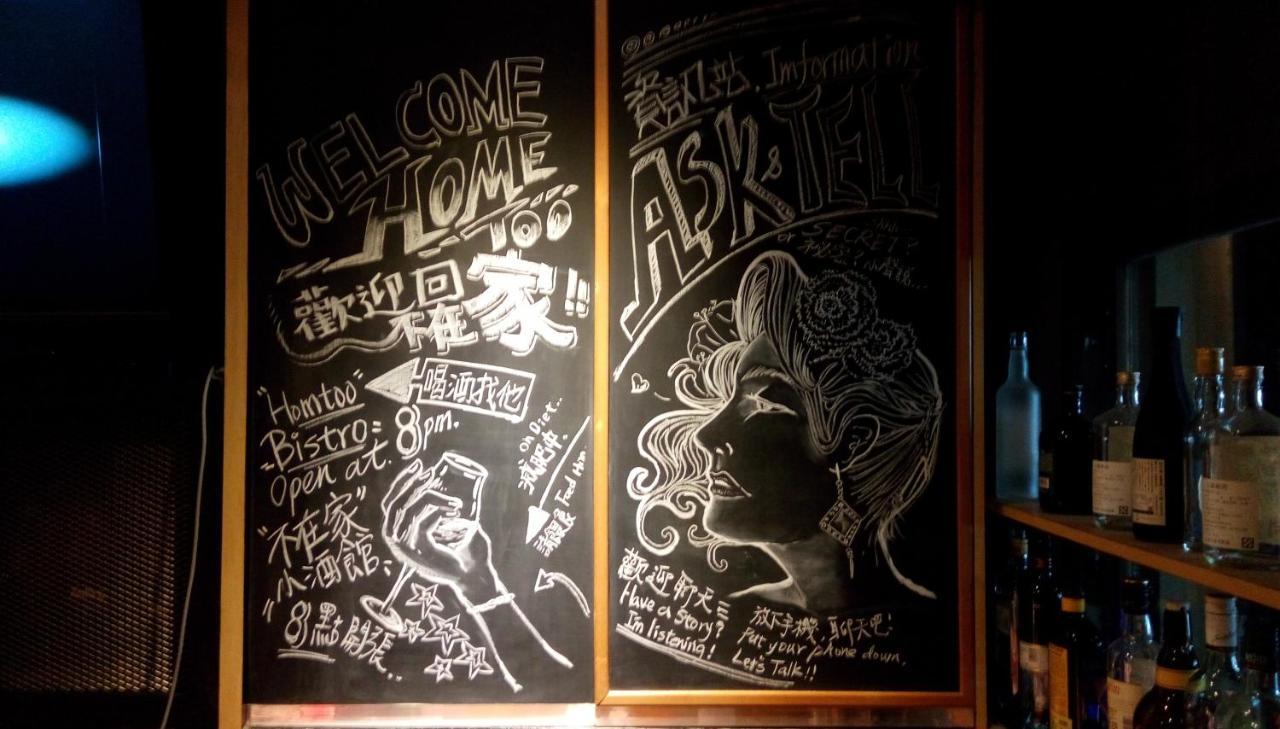 WELCOME
HOME
TOO
歡迎回家!!
不在
喝酒找他
"Homtoo"
Bistro
Open at 8pm.
"不在家"
小酒館、
8點開張...
on Diet..
減肥中.
請餵食 Feed Him
資訊站.Imformation
ASK & TELL
or SECRET?
秘密?小聲說...
歡迎聊天
Have a story?
I'm listening!
放下手機,聊天吧!
Put your phone down,
Let's Talk!!